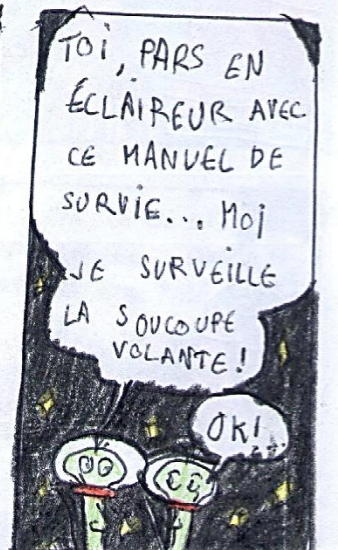 TOI, PARS EN
ÉCLAIREUR AVEC
CE MANUEL DE
SURVIE... MOI
JE SURVEILLE
LA SOUCOUPE
VOLANTE !
OK!